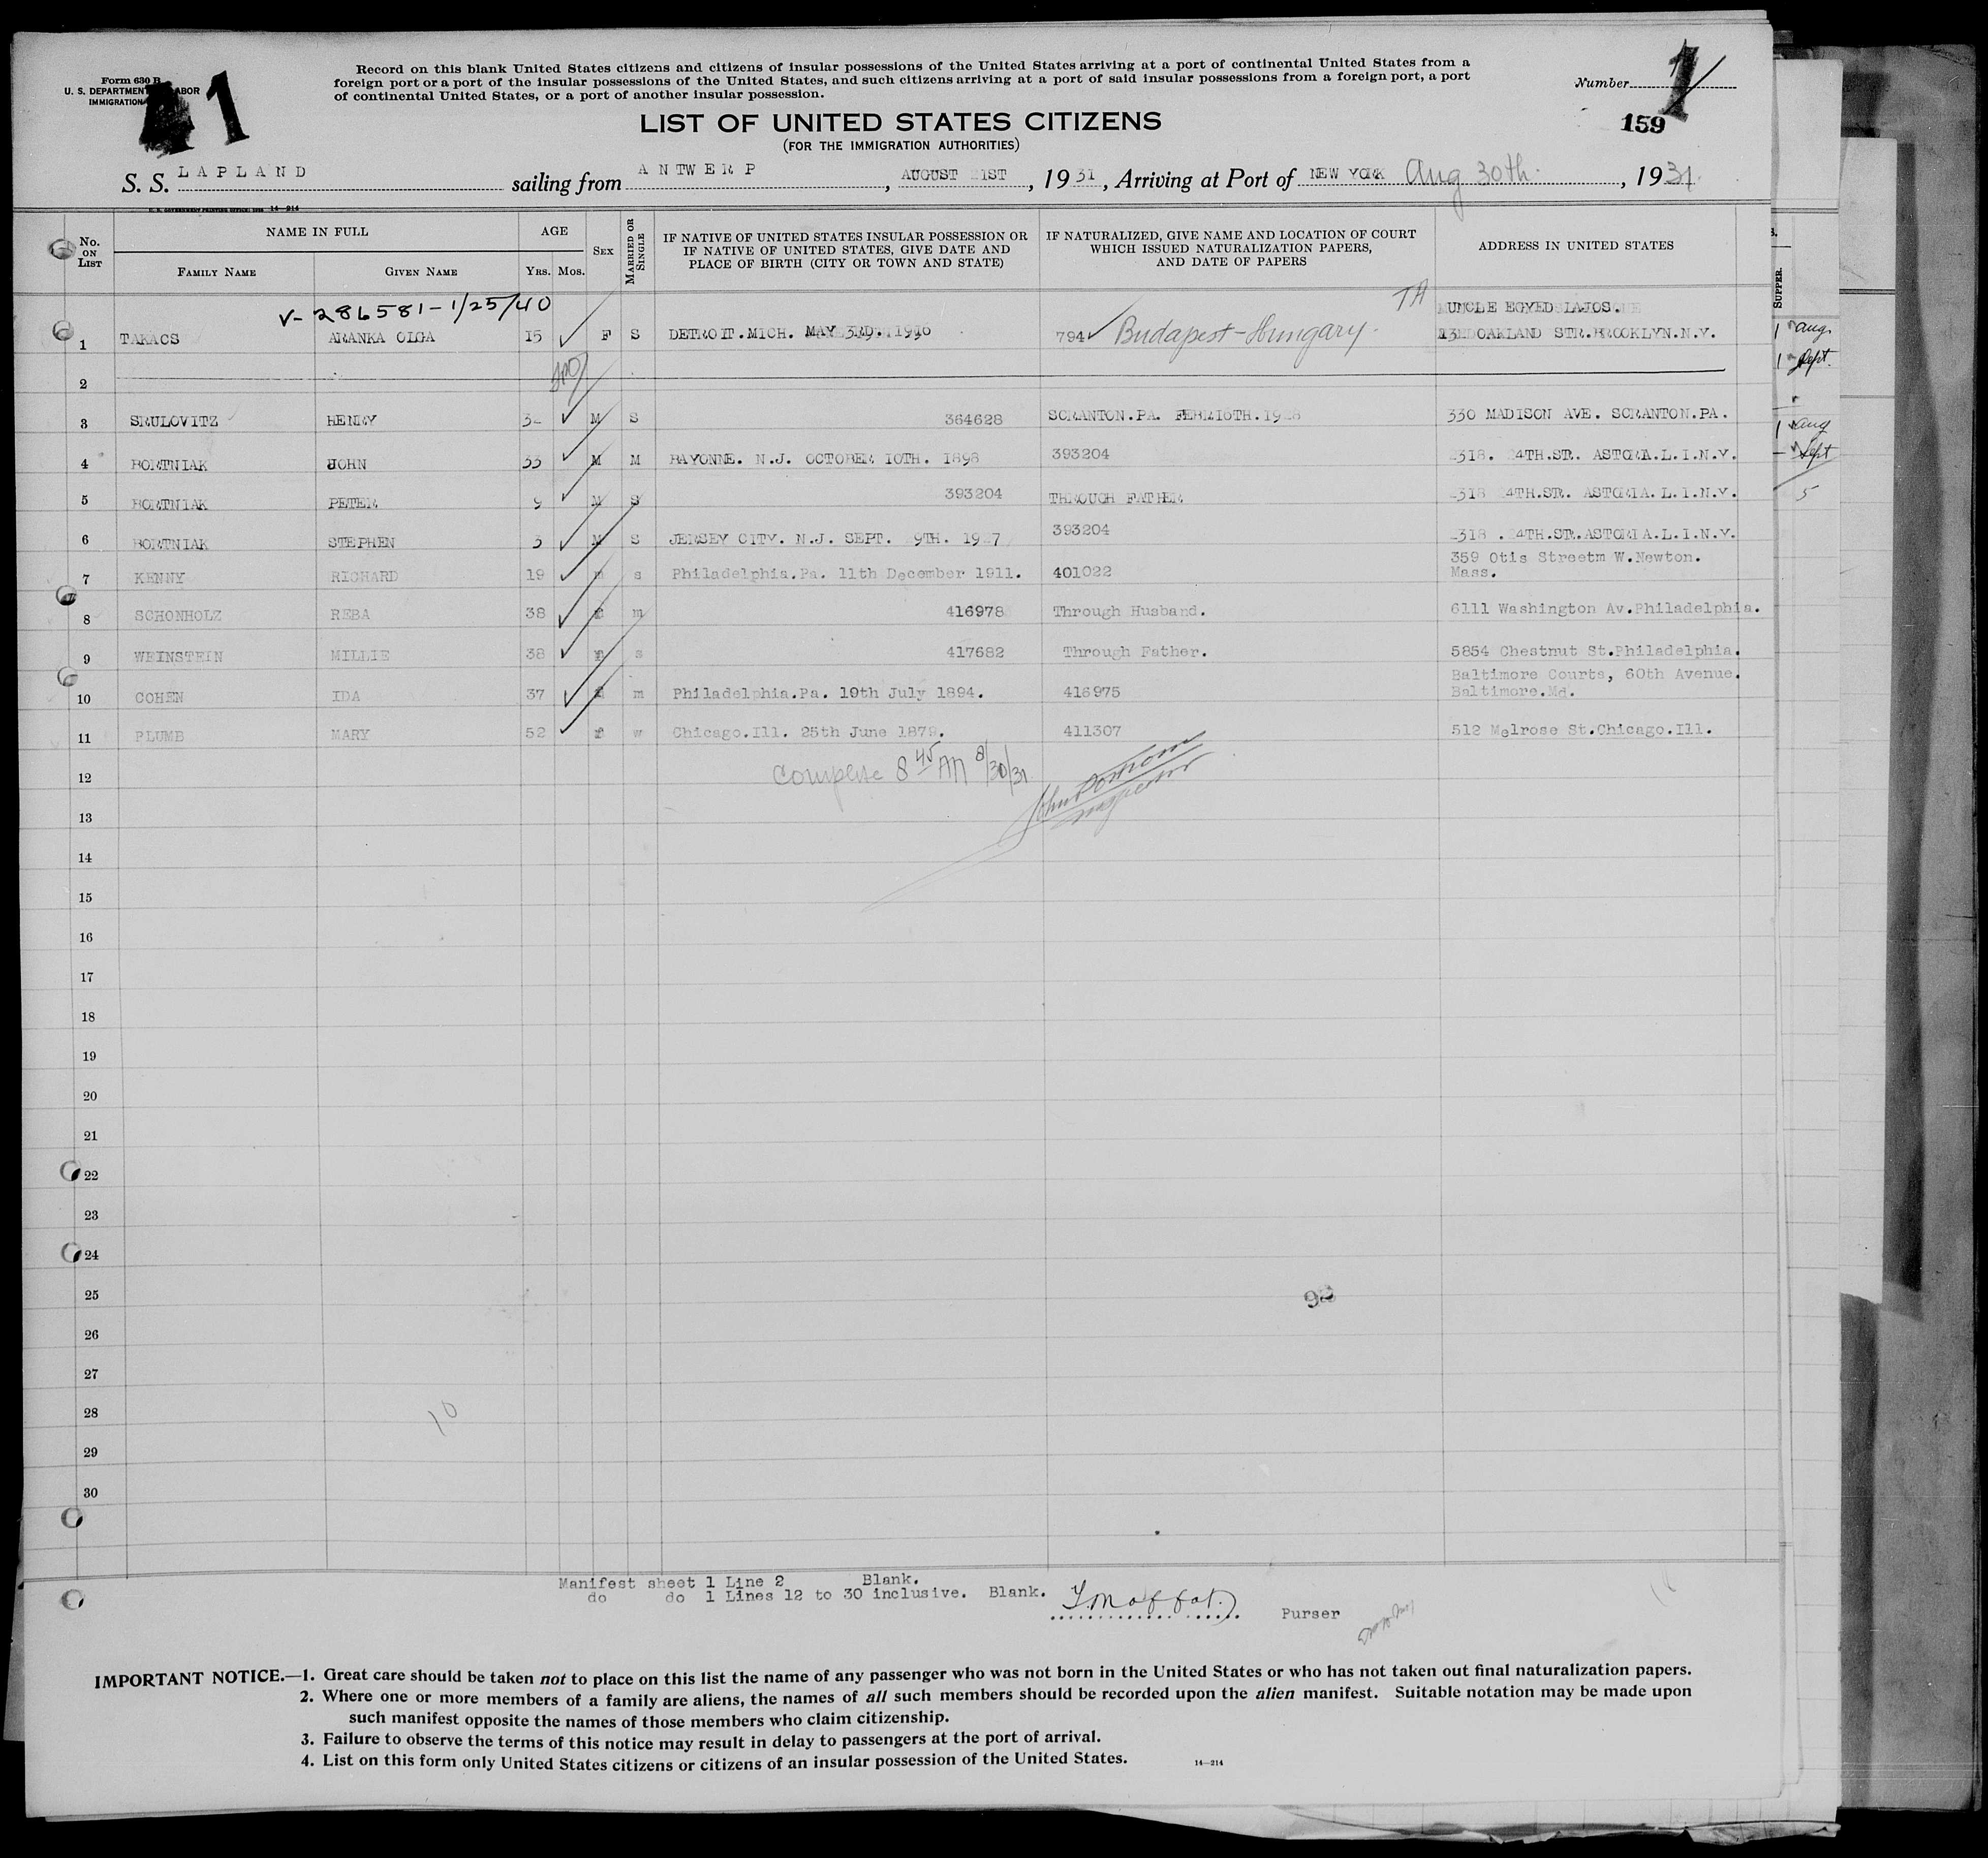 Form 630 B
U. S. DEPARTMENT LABOR
IMMIGRATION
1
Record on this blank United States citizens and citizens of insular possessions of the United States arriving at a port of continental United States from a
foreign port or a port of the insular possessions of the United States, and such citizens arriving at a port of said insular possessions from a foreign port, a port
of continental United States, or a port of another insular possession.
Number 1
159
LIST OF UNITED STATES CITIZENS
(FOR THE IMMIGRATION AUTHORITIES)
S. S. LAPLAND sailing from ANTWERP, AUGUST 21ST, 1931, Arriving at Port of NEW YORK Aug 30th, 1931
No. ON LIST
NAME IN FULL
FAMILY NAME GIVEN NAME
AGE
YRS. MOS.
SEX
MARRIED OR SINGLE
IF NATIVE OF UNITED STATES INSULAR POSSESSION OR
IF NATIVE OF UNITED STATES, GIVE DATE AND
PLACE OF BIRTH (CITY OR TOWN AND STATE)
IF NATURALIZED, GIVE NAME AND LOCATION OF COURT
WHICH ISSUED NATURALIZATION PAPERS,
AND DATE OF PAPERS
ADDRESS IN UNITED STATES
SUPPER.
V-286581-1/25/40
TA
UNCLE EGYED LAJOS.
1 TAKACS ARANKA OLGA 15 F S DETROIT.MICH. MAY 3RD. 1916 794 Budapest-Hungary. OAKLAND STR.BROOKLYN.N.Y.
1 Aug.
1 Sept.
2
3 SRULOVITZ HENRY M S 364628 SCRANTON.PA. 1928 330 MADISON AVE. SCRANTON.PA.
1 Aug
4 BORTNIAK JOHN 33 M M BAYONNE. N.J. OCTOBER 10TH. 1898 393204 2318. 24TH.STR. ASTORIA.L.I.N.Y.
Sept
5 BORTNIAK PETER 9 M S 393204 THROUGH FATHER 2318 24TH.STR. ASTORIA.L.I.N.Y.
5
6 BORTNIAK STEPHEN 3 M S JERSEY CITY. N.J. SEPT. 9TH. 1927 393204 2318 .24TH.STR.ASTORIA.L.I.N.Y.
359 Otis Streetm W.Newton.
7 KENNY RICHARD 19 m s Philadelphia.Pa. 11th December 1911. 401022 Mass.
8 SCHONHOLZ REBA 38 f m 416978 Through Husband. 6111 Washington Av.Philadelphia.
9 WEINSTEIN MILLIE 38 f s 417682 Through Father. 5854 Chestnut St.Philadelphia.
Baltimore Courts, 60th Avenue.
10 COHEN IDA 37 f m Philadelphia.Pa. 19th July 1894. 416975 Baltimore.Md.
11 PLUMB MARY 52 f w Chicago.Ill. 25th June 1879. 411307 512 Melrose St.Chicago.Ill.
12 Complete 8 45 AM 8/30/31
Inspector
13
14
15
16
17
18
19
20
21
22
23
24
25
26
27
28 10
29
30
Manifest sheet 1 Line 2 Blank.
do do 1 Lines 12 to 30 inclusive. Blank.
Moffat Purser
IMPORTANT NOTICE.—1. Great care should be taken not to place on this list the name of any passenger who was not born in the United States or who has not taken out final naturalization papers.
2. Where one or more members of a family are aliens, the names of all such members should be recorded upon the alien manifest. Suitable notation may be made upon
such manifest opposite the names of those members who claim citizenship.
3. Failure to observe the terms of this notice may result in delay to passengers at the port of arrival.
4. List on this form only United States citizens or citizens of an insular possession of the United States.
14—214